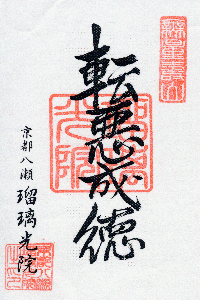 転悪成徳
京都八瀬
瑠璃光院